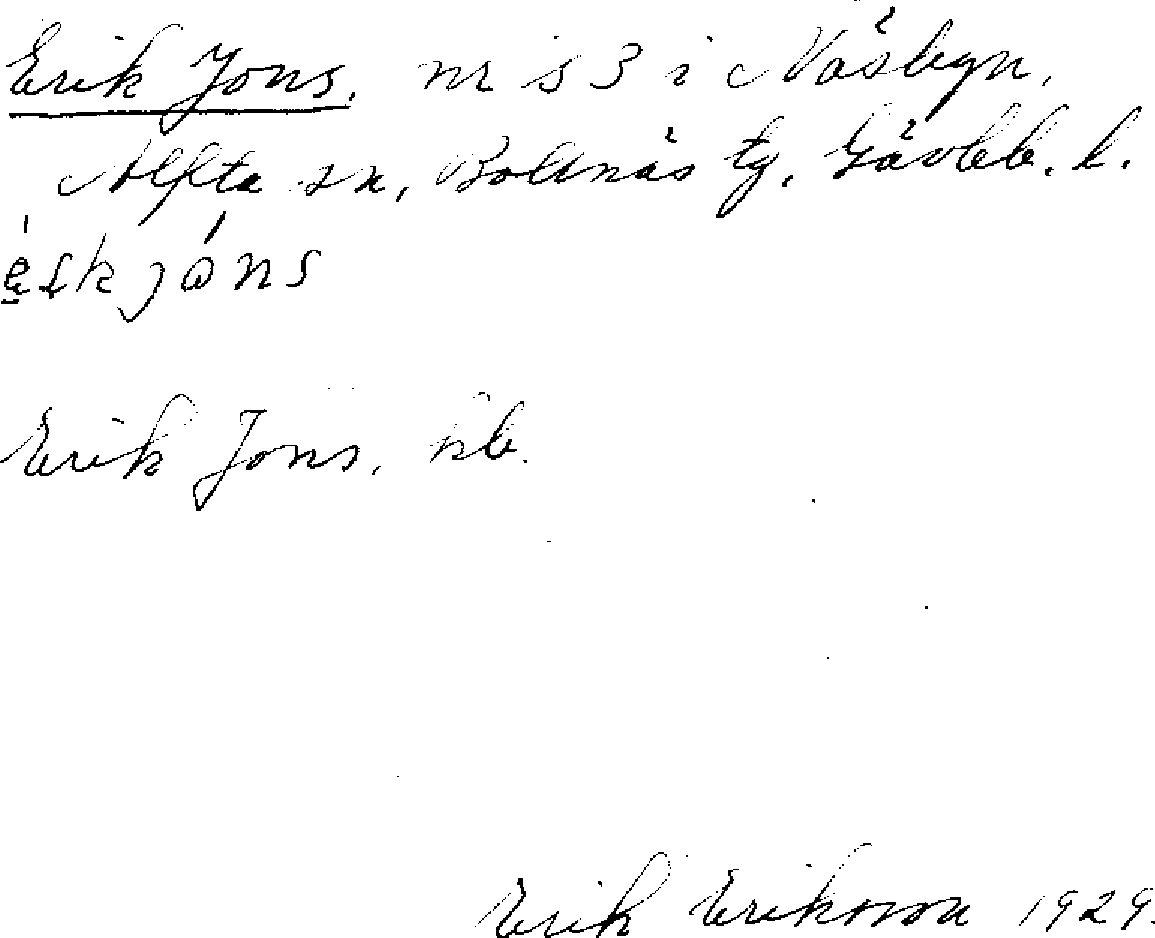 Erik Jons, nr s 3 i Näsbyn,
Alfta sn, Bollnäs tg, Gävleb. l.
Erik Jons, kb.
Erik Eriksson 1929.